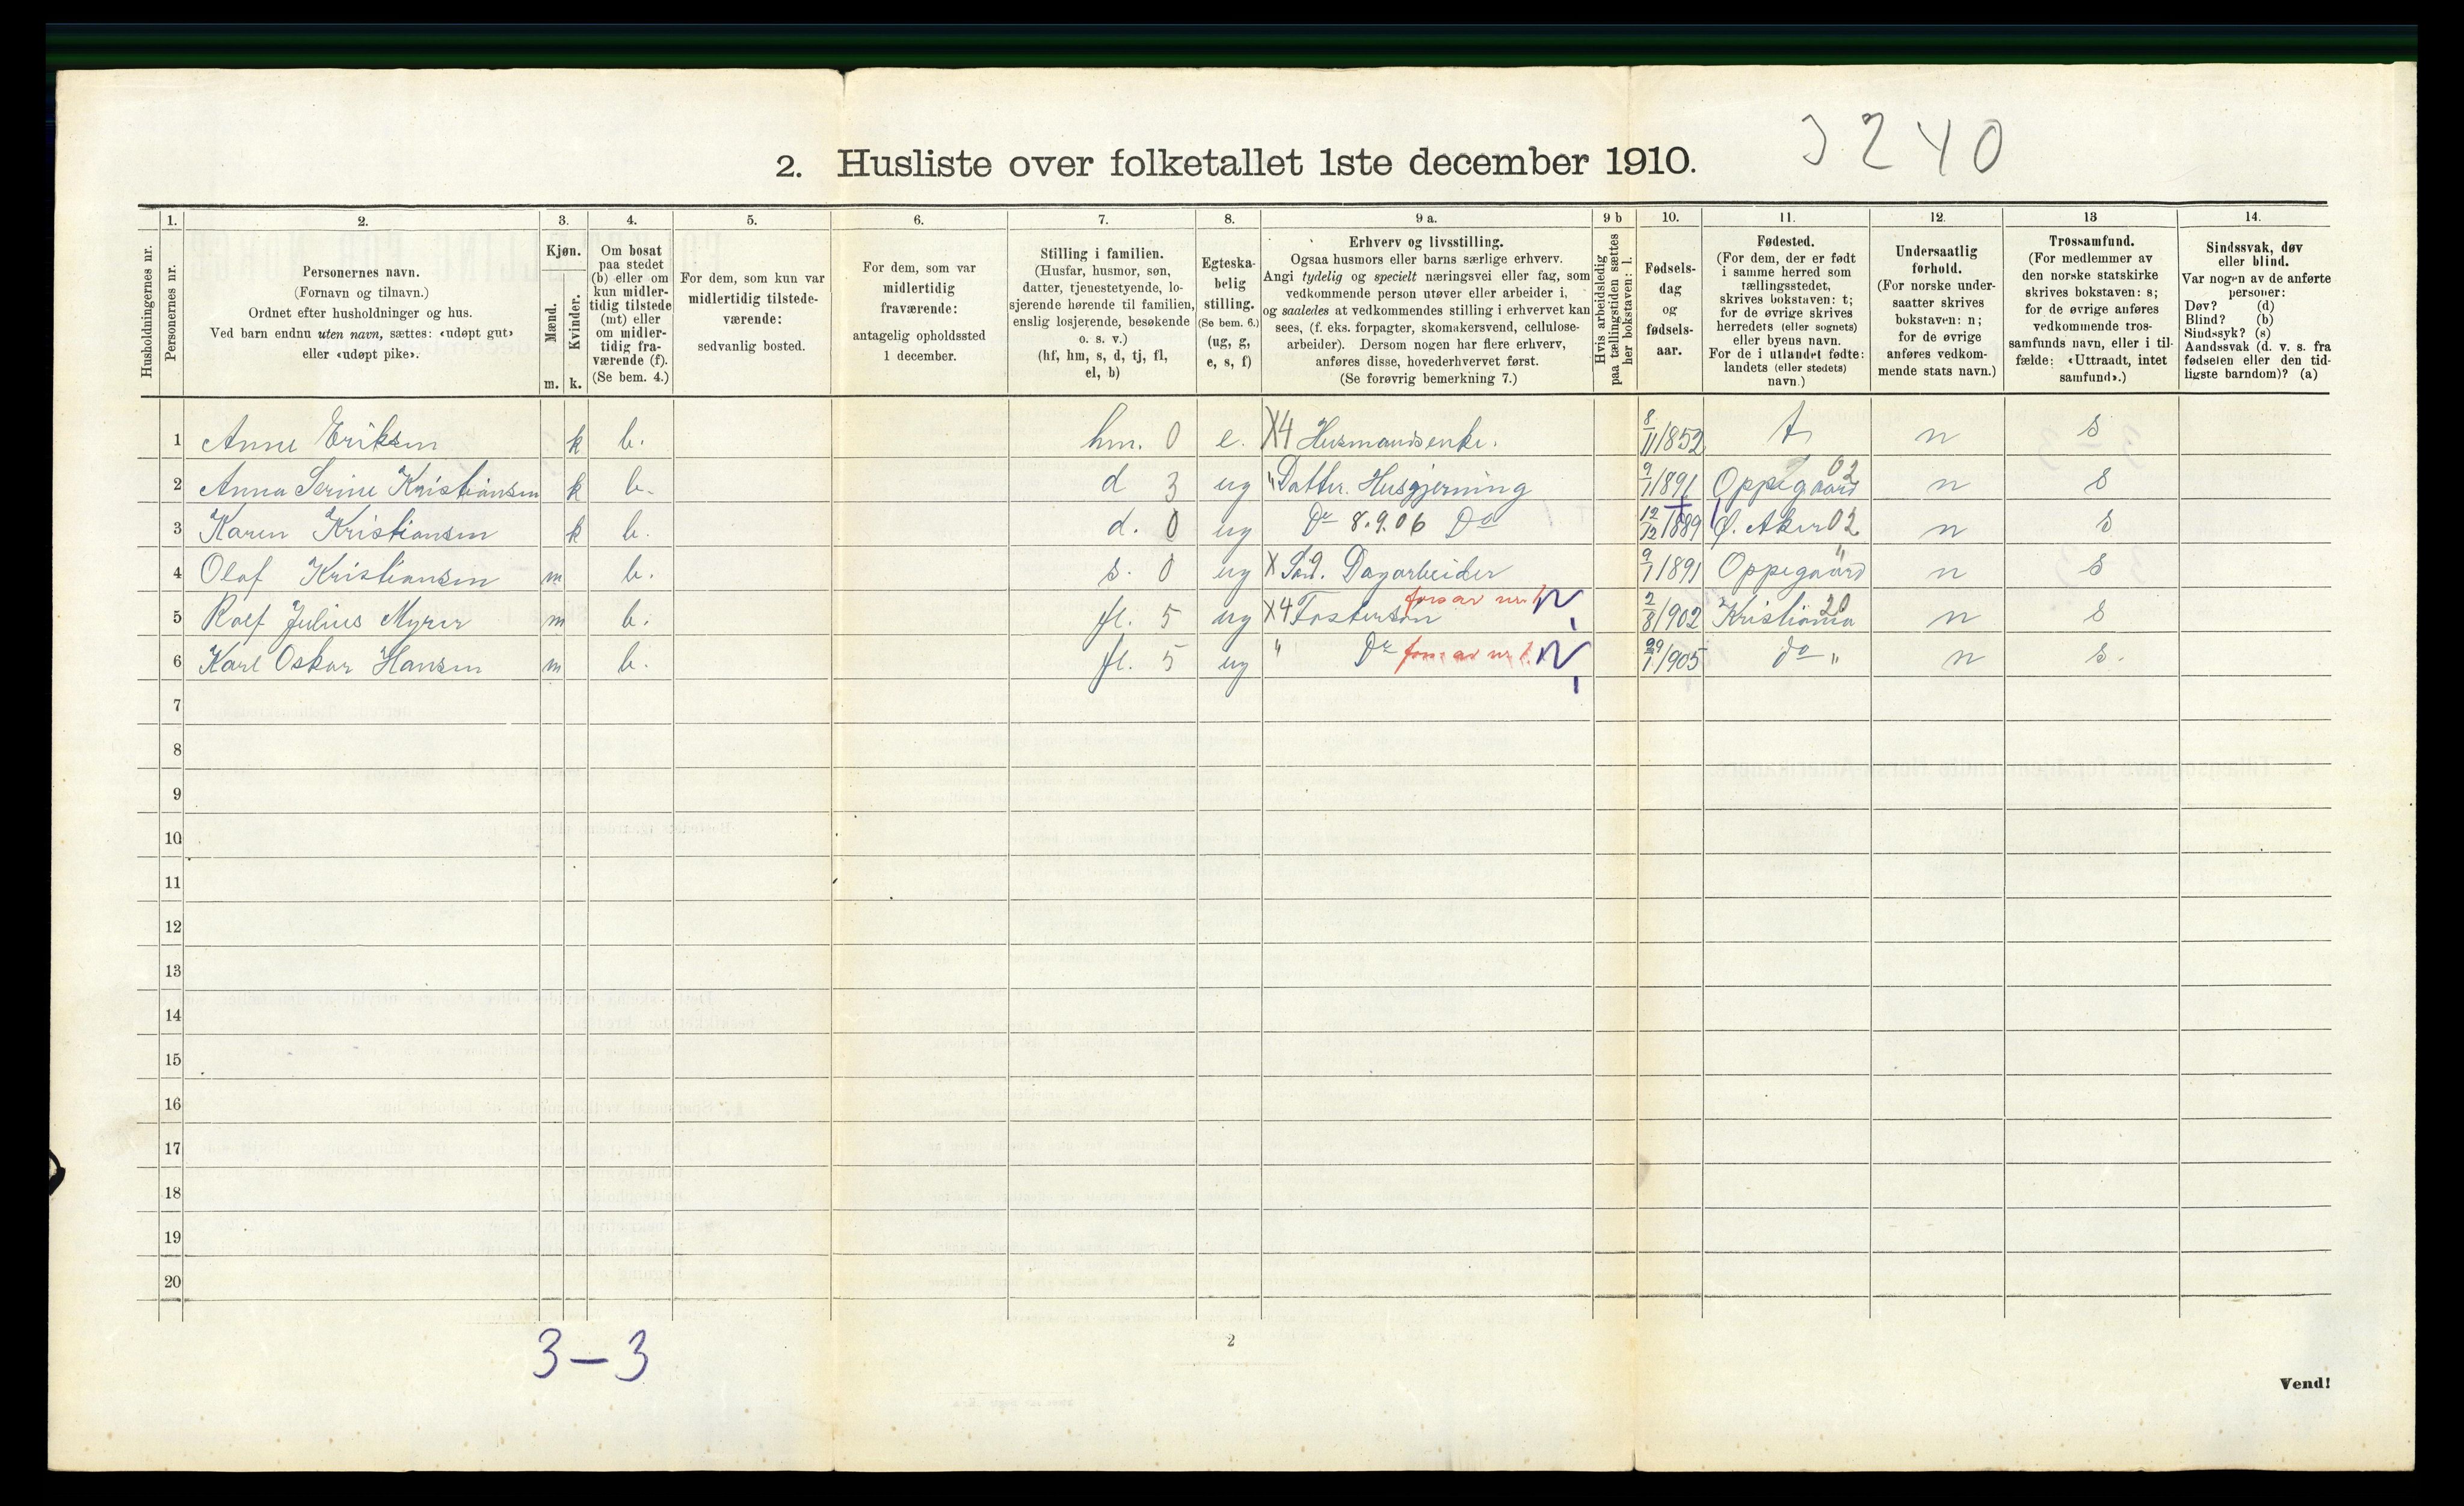 3240
2. Husliste over folketallet 1ste december 1910.
Husholdningernes nr.
1.
Personernes nr.
2.
Personernes navn.
(Fornavn og tilnavn.)
Ordnet efter husholdninger og hus.
Ved barn endnu uten navn, sættes: «udøpt gut»
eller «udøpt pike».
3.
Kjøn.
Mænd.
Kvinder.
m. k.
4.
Om bosat
paa stedet
(b) eller om
kun midler-
tidig tilstede
(mt) eller
om midler-
tidig fra-
værende (f).
(Se bem. 4.)
5.
For dem, som kun var
midlertidig tilstede-
værende:
sedvanlig bosted.
6.
For dem, som var
midlertidig
fraværende:
antagelig opholdssted
1 december.
7.
Stilling i familien.
(Husfar, husmor, søn,
datter, tjenestetyende, lo-
sjerende hørende til familien,
enslig losjerende, besøkende
o. s. v.)
(hf, hm, s, d, tj, fl,
el, b)
8.
Egteska-
belig
stilling.
(Se bem. 6.)
(ug, g,
e, s, f)
9 a.
Erhverv og livsstilling.
Ogsaa husmors eller barns særlige erhverv.
Angi tydelig og specielt næringsvei eller fag, som
vedkommende person utøver eller arbeider i,
og saaledes at vedkommendes stilling i erhvervet kan
sees, (f. eks. forpagter, skomakersvend, cellulose-
arbeider). Dersom nogen har flere erhverv,
anføres disse, hovederhvervet først.
(Se forøvrig bemerkning 7.)
9 b
Hvis arbeidsledig
paa tællingstiden sættes
her bokstaven: l.
10.
Fødsels-
dag
og
fødsels-
aar.
11.
Fødested.
(For dem, der er født
i samme herred som
tællingsstedet,
skrives bokstaven: t;
for de øvrige skrives
herredets (eller sognets)
eller byens navn.
For de i utlandet fødte:
landets (eller stedets)
navn.)
12.
Undersaatlig
forhold.
(For norske under-
saatter skrives
bokstaven: n;
for de øvrige
anføres vedkom-
mende stats navn.)
13
Trossamfund.
(For medlemmer av
den norske statskirke
skrives bokstaven: s;
for de øvrige anføres
vedkommende tros-
samfunds navn, eller i til-
fælde: «Uttraadt, intet
samfund».)
14.
Sindssvak, døv
eller blind.
Var nogen av de anførte
personer:
Døv? (d)
Blind? (b)
Sindssyk? (s)
Aandssvak (d. v. s. fra
fødselen eller den tid-
ligste barndom)? (a)
1 Anne Eriksen k b. hm. 0 e. X4 Husmandsenke. 8/11 1852 t n s
2 Anna Serine Kristiansen k b. d 3 ug " Datter. Husgjerning 9/1 1891 Oppegaard 02 n s
3 Karen Kristiansen k b. d. 0 ug Do 8.9.06 Do 12/12 1889 Ø. Aker 02 n s
4 Olaf Kristiansen m b. s. 0 ug X Søn. Dagarbeider 9/1 1891 Oppegaard " n s
5 Rolf Julius Myrer m b. fl. 5 ug X4 Fostersøn fors av nr. 1 N 2/8 1902 Kristiania 20 n s
6 Karl Oskar Hansen m b. fl. 5 ug " Do fors av nr 1. N 29/1 1905 do " n s.
7
8
9
10
11
12
13
14
15
16
17
18
19
20
3-3
2
Vend!